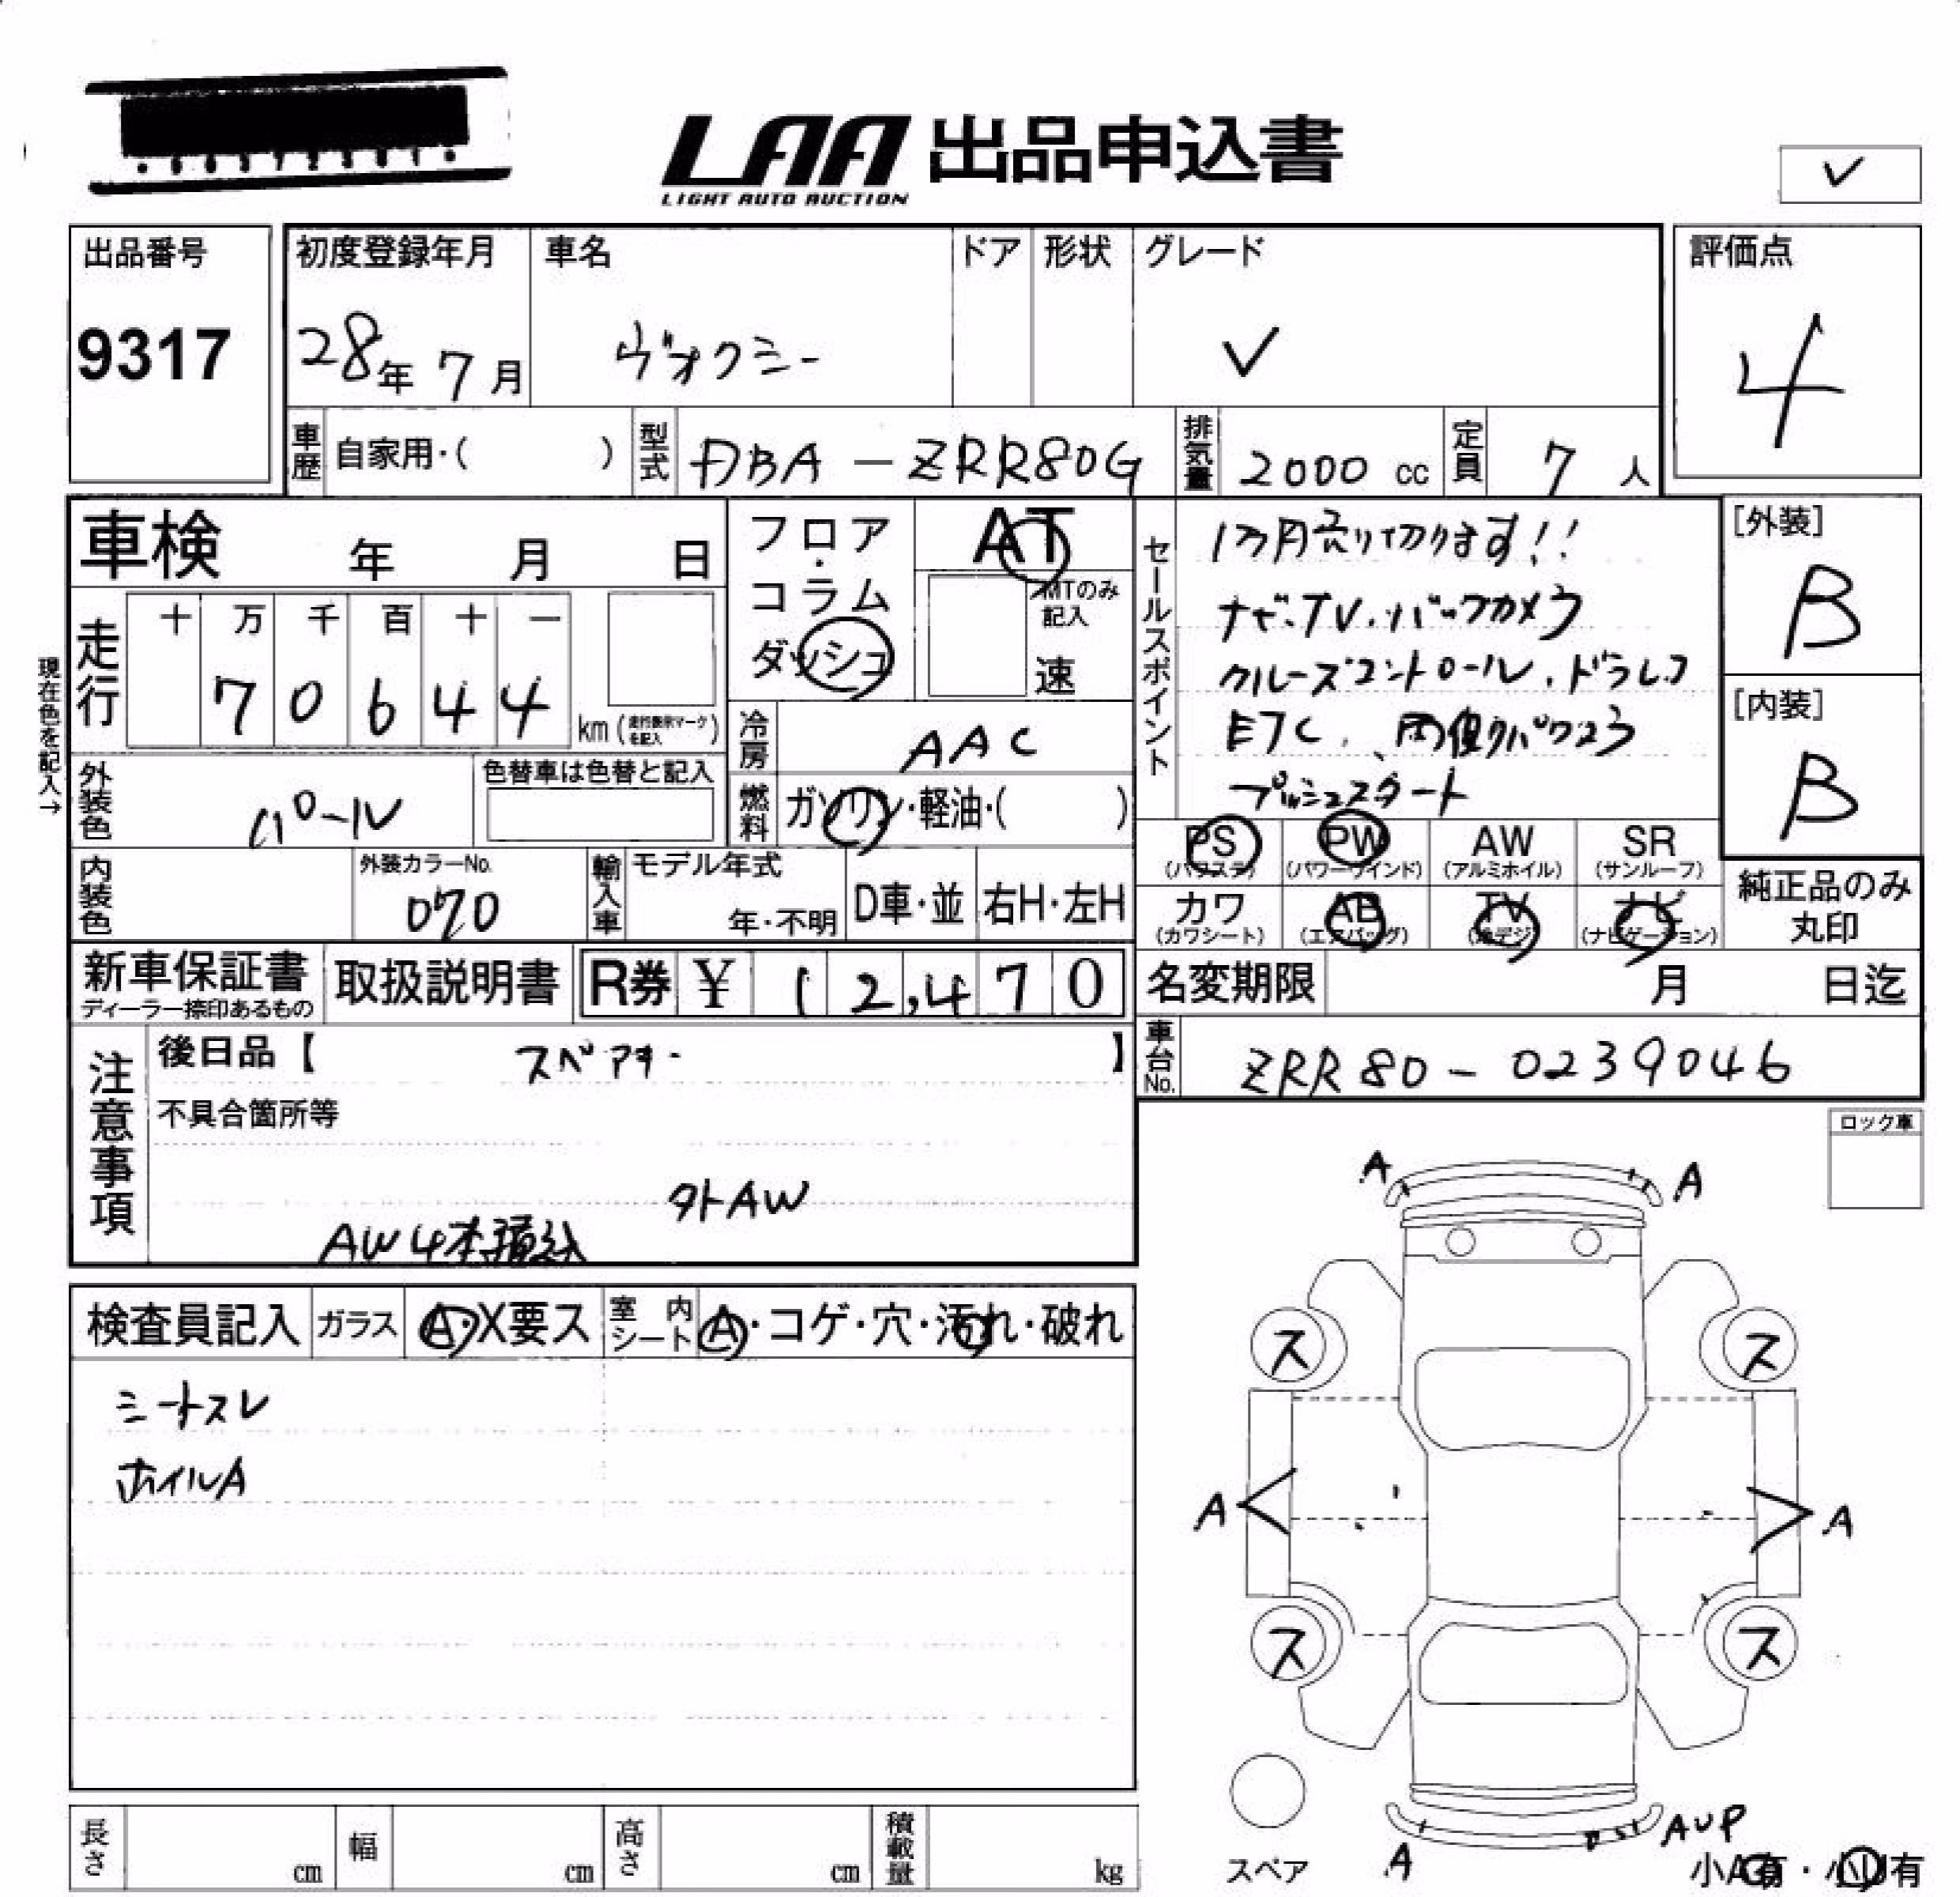 LAA 出品申込書
LIGHT AUTO AUCTION
出品番号 9317
初度登録年月 28年 7月
車名 ヴォクシー
ドア
形状
グレード V
評価点 4
車歴 自家用・( )
型式 DBA-ZRR80G
排気量 2000 cc
定員 7 人
車検 年 月 日
フロア・コラム ダッシュ
AT
MTのみ記入
速
現在色を記入→
走行 十 万 千 百 十 一
70644 km (走行表示マークを記入)
冷房 AAC
外装色 パール
色替車は色替と記入
燃料 ガソリン・軽油・( )
内装色
外装カラーNo. 070
輸入車 モデル年式 年・不明
D車・並 右H・左H
新車保証書
ディーラー捺印あるもの
取扱説明書
R券 ¥ 12,470
セールスポイント
1万円売り切ります!!
ナビ・TV・バックカメラ
クルーズコントロール・ドラレコ
ETC、両側
プッシュスタート
[外装] B
[内装] B
PS (パワステ) PW (パワーウインド) AW (アルミホイル) SR (サンルーフ)
カワ (カワシート) AB (エアバッグ) TV (地デジ) ナビ (ナビゲーション)
純正品のみ丸印
名変期限 月 日迄
車台No. ZRR80-0239046
注意事項
後日品【 スペアキー 】
不具合箇所等
外AW
AW4本積込
ロック車
検査員記入 ガラス A・X要ス 室内シート A・コゲ・穴・汚れ・破れ
シートスレ
ホイルA
A A
ス ス
A A
ス ス
スペア
A AUP
小A有・小U有
長さ cm 幅 cm 高さ cm 積載量 kg